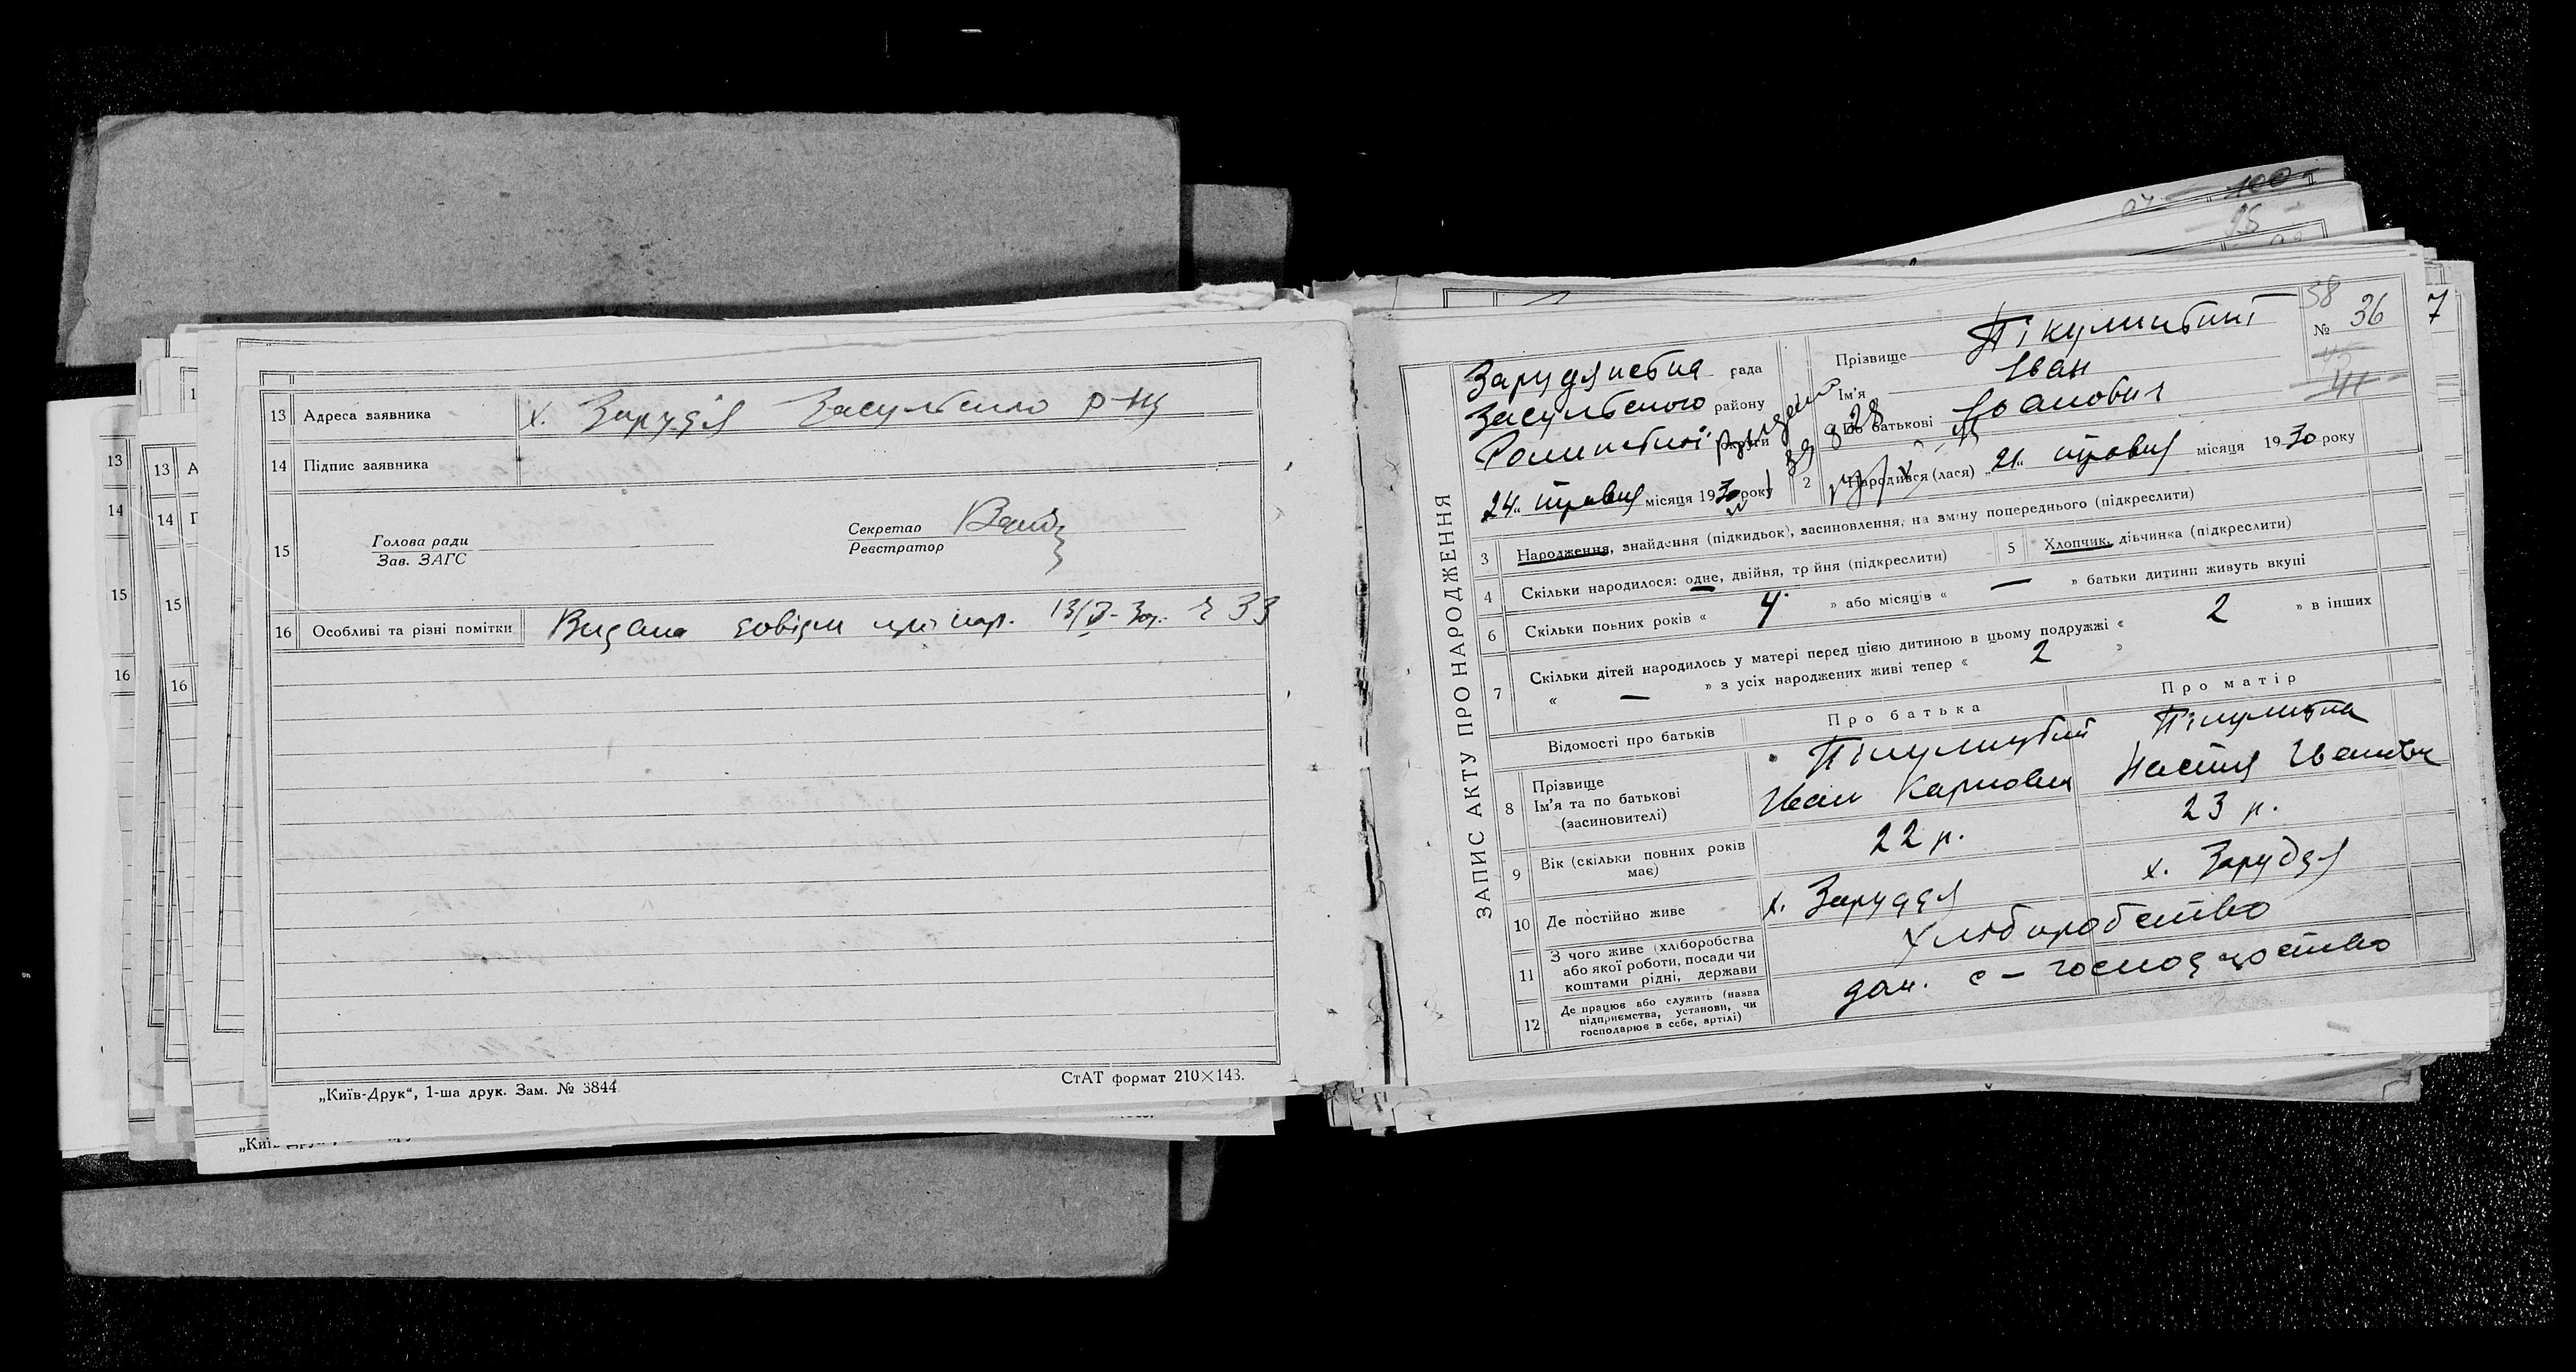 13 Адреса заявника х. Заруддя Засульського р-ну
14 Підпис заявника
15 Голова ради
Зав. ЗАГС
Секретар
Реєстратор
16 Особливі та різні помітки Видана довідка про нар. 13/V-30р. № 33
„Київ-Друк“, 1-ша друк. Зам. № 3844
СтАТ формат 210×143.
13
14
15
16
13 А
14 П
15
16
ЗАПИС АКТУ ПРО НАРОДЖЕННЯ
58
№ 36
7
41
Заруднетна рада
Засульського району
Роменської округи
24 травня місяця 1930 року
Прізвище Пікулицький
Ім'я Іван
По батькові Іванович
2 Народився (лася) „21“ травня місяця 1930 року
3 Народження, знайдення (підкидьок), засиновлення, на зміну попереднього (підкреслити)
4 Скільки народилося: одне, двійня, трійня (підкреслити)
5 Хлопчик, дівчинка (підкреслити)
6 Скільки повних років « 4 » або місяців « — » батьки дитини живуть вкупі
7 Скільки дітей народилось у матері перед цією дитиною в цьому подружжі « 2 » в інших
« — » з усіх народжених живі тепер « 2 »
Відомості про батьків
Про батька
Про матір
8 Прізвище
Ім'я та по батькові
(засиновителі)
Пікулицький
Иван Карпович
Настя Ивановн
9 Вік (скільки повних років має)
22 р.
23 р.
10 Де постійно живе
х. Заруддя
х. Заруддя
11 З чого живе (хліборобства або якої роботи, посади чи коштами рідні, держави
хліборобство
12 Де працює або служить (назва підприємства, установи, чи господарює в себе, артілі)
дом. с-господарство